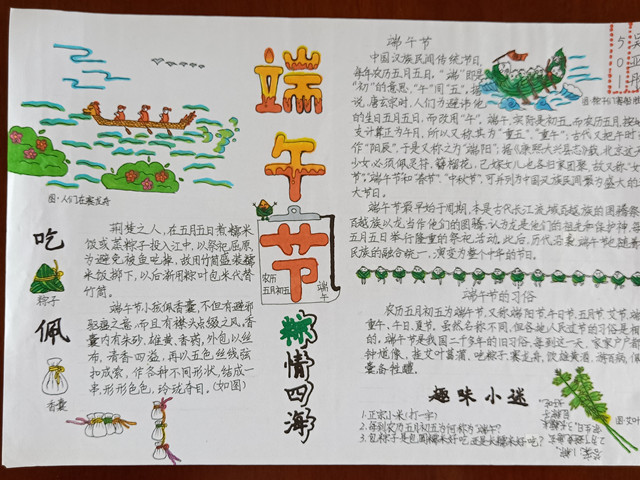 端午节
粽情四海
农历
五月初五
端午
图·人们在赛龙舟
吃
粽子
佩
香囊
荆楚之人，在五月五日煮糯米
饭或蒸粽子投入江中，以祭祀屈原，
为避免被鱼吃掉，故用竹筒盛装糯
米饭掷下，以后渐用粽叶包米代替
竹筒。
端午节小孩佩香囊，不但有避邪
驱瘟之意，而且有襟头点缀之风，香
囊内有朱砂、雄黄、香药，外包以丝
布，清香四溢，再以五色丝线弦
扣成索，作各种不同形状，结成一
串，形形色色，玲珑夺目。（如图）
端午节
中国汉族民间传统节日，
每年农历五月五日，“端”即是
“初”的意思，“午”同“五”，据
说，唐玄宗时，人们为避讳他
的生日五月五日，而改用“午”。端午，实际是初五，而农历五月，按地
支计算正为午月，所以又称其为“重五”，“重午”；古代又把午时
作“阳辰”，于是又称之为“端阳”；据
少女必须佩灵符，簪榴花，已嫁女儿也各归家团聚，故又称“女
节”。端午节和“春节”、“中秋节”，可并列为中国汉族民间最为盛大的
大节日。
端午节最早始于周朝，本是古代长江流域百越族的图腾祭
百越族以龙当作他们的图腾，认为龙是他们的祖先和保护神，每
月五日举行隆重的祭祀活动。此后，历代沿袭，端午节也随着
民族的融合统一，演变为整个中华的节日。
端午节的习俗
农历五月初五为端午节，又称端阳节、午日节、五月节、艾节、端
重午、午日、夏节，虽然名称不同，但各地人民过节的习俗是相
的。端午节是我国二千多年的旧习俗，每到这一天，家家户户都
钟馗像，挂艾叶菖蒲，吃粽子、赛龙舟，饮雄黄酒，游百病，佩
囊，备牲醴。
趣味小迷
1.正宗小米（打一字）
2.每到农历五月初五为何称为“端午”？
3.包粽子是包圆糯米好吃，还是长糯米好吃？
501